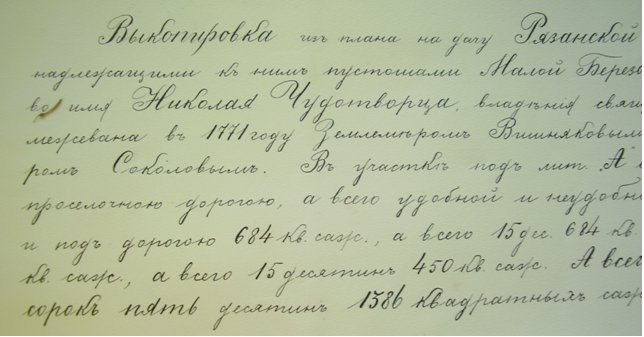 Выкопировка изъ плана на дачу Рязанской
надлежащими къ нимъ пустошами Малой Берез
во имя Николая Чудотворца, владѣнія свящ
межевана въ 1771 году Землемѣромъ Вишняковым
ромъ Соколовымъ. Въ участкѣ подъ лит. „А"
проселочною дорогою, а всего удобной и неудобн
и подъ дорогою 684 кв. саж., а всего 15 дес. 684 кв.
кв. саж., а всего 15 десятинъ 450 кв. саж. А всег
сорокъ пять десятинъ 1386 квадратныхъ саж